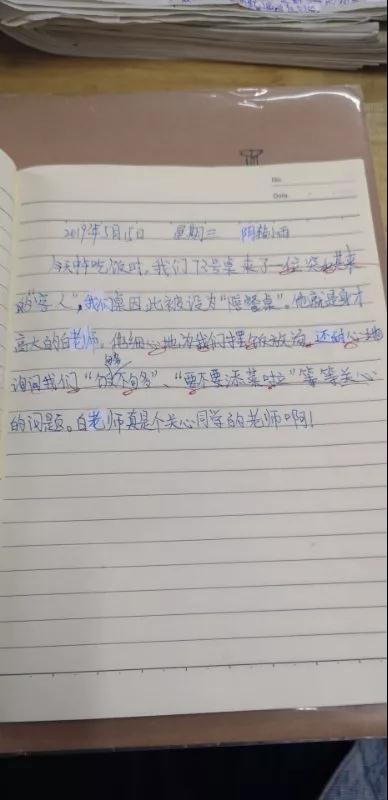 No.
Date.
2019年5月15日 星期三 阴转小雨
今天中午吃饭时，我们73号桌来了一位突如其来
的“客人”，我们桌因此被设为“陪餐桌”。他就是身才
高大的白老师。他细心地为我们摆好饭, 还耐心地
询问我们“够不够”、“要不要添菜啦”等等关心
的问题。白老师真是个关心同学的老师啊！